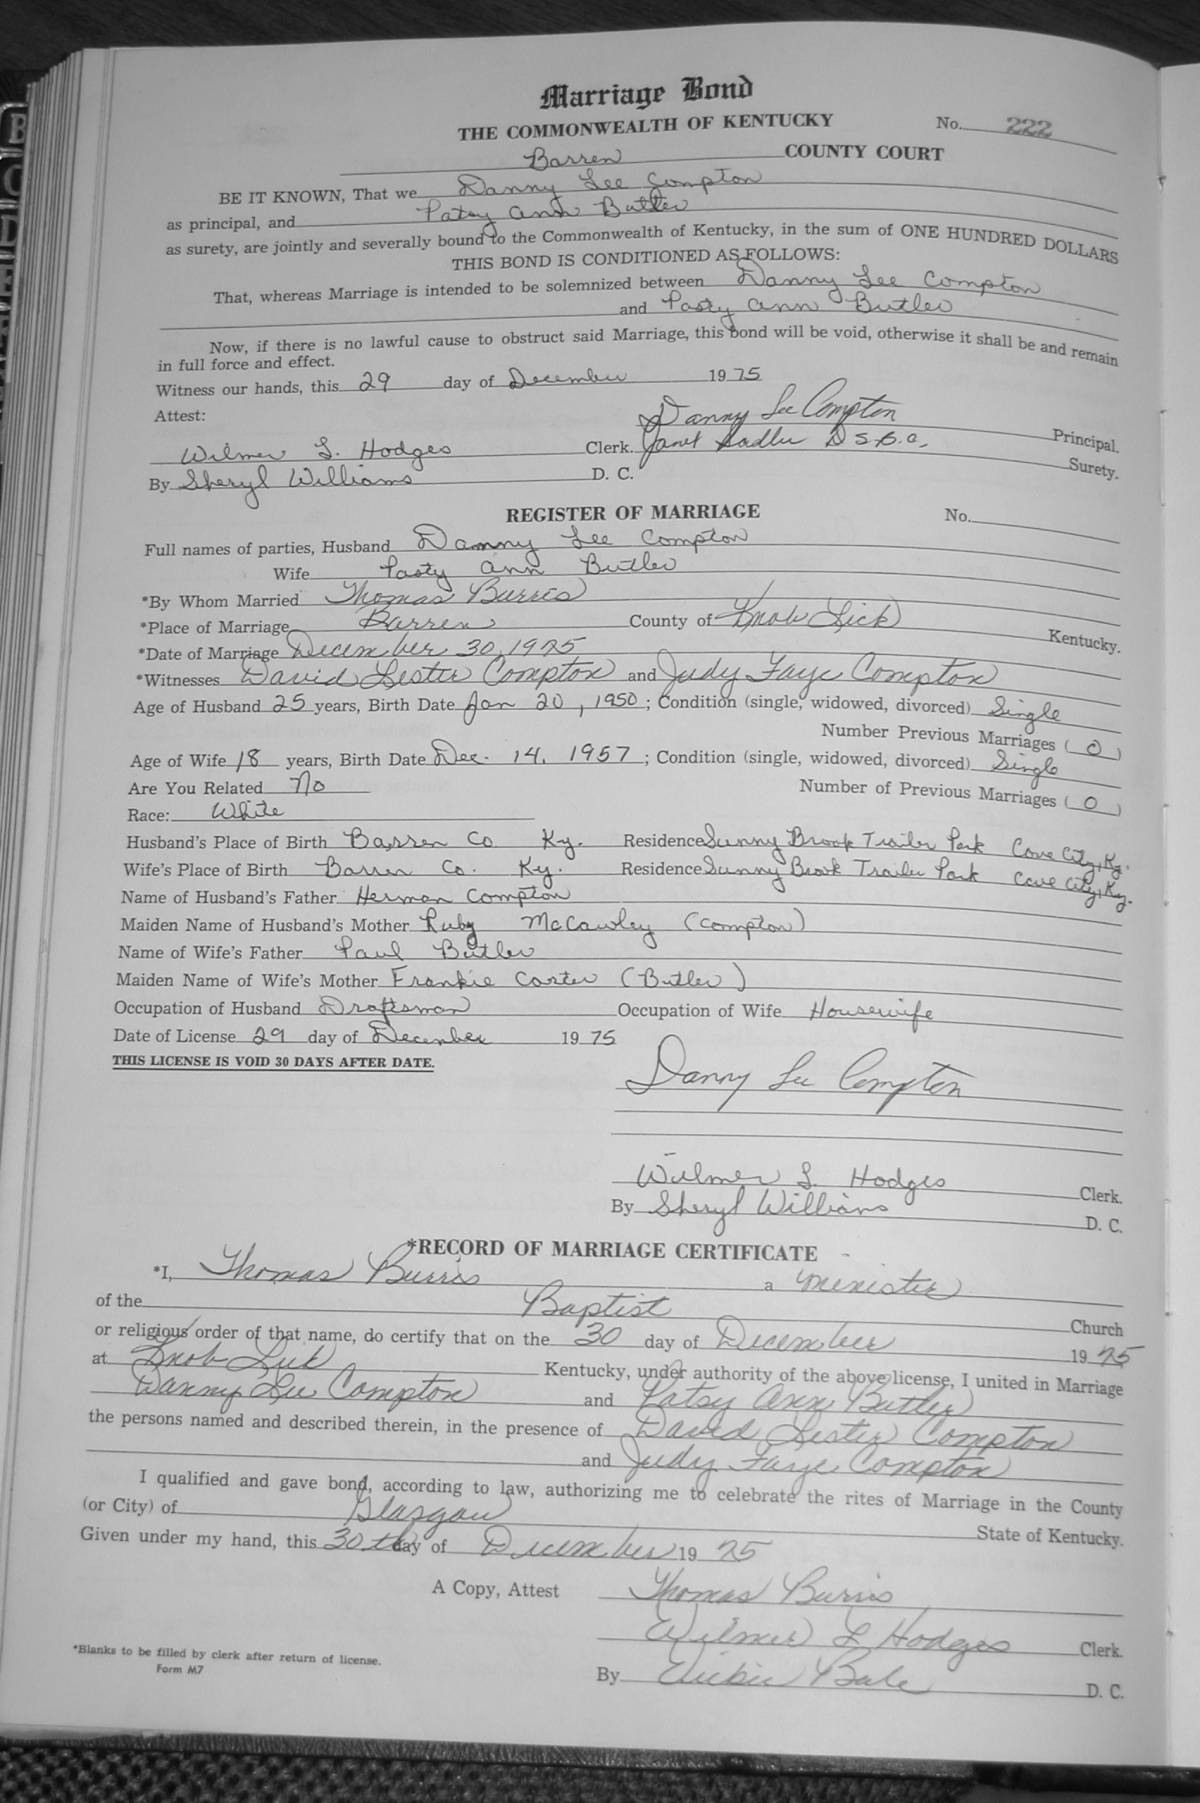 Marriage Bond
THE COMMONWEALTH OF KENTUCKY No. 222
Barren COUNTY COURT
BE IT KNOWN, That we Danny Lee Compton
as principal, and Patsy Ann Butler
as surety, are jointly and severally bound to the Commonwealth of Kentucky, in the sum of ONE HUNDRED DOLLARS
THIS BOND IS CONDITIONED AS FOLLOWS:
That, whereas Marriage is intended to be solemnized between Danny Lee Compton
and Pasty Ann Butler
Now, if there is no lawful cause to obstruct said Marriage, this bond will be void, otherwise it shall be and remain
in full force and effect.
Witness our hands, this 29 day of December 1975
Attest: Danny Lee Compton Principal.
Wilmer L. Hodges Clerk. Janet Sadler D S.B.C. Surety.
By Sheryl Williams D. C.
REGISTER OF MARRIAGE No.
Full names of parties, Husband Danny Lee Compton
Wife Pasty Ann Butler
*By Whom Married Thomas Burris
*Place of Marriage Barren County of Knob Lick Kentucky.
*Date of Marriage December 30, 1975
*Witnesses David Lester Compton and Judy Faye Compton
Age of Husband 25 years, Birth Date Jan 20, 1950; Condition (single, widowed, divorced) Single
Number Previous Marriages (0)
Age of Wife 18 years, Birth Date Dec. 14, 1957; Condition (single, widowed, divorced) Single
Are You Related No Number of Previous Marriages (0)
Race: White
Husband's Place of Birth Barren Co Ky. Residence Sunny Brook Trailer Park Cave City, Ky.
Wife's Place of Birth Barren Co. Ky. Residence Sunny Brook Trailer Park Cave City, Ky.
Name of Husband's Father Herman Compton
Maiden Name of Husband's Mother Ruby McCawley (Compton)
Name of Wife's Father Paul Butler
Maiden Name of Wife's Mother Frankie Carter (Butler)
Occupation of Husband Draftsman Occupation of Wife Housewife
Date of License 29 day of December 1975
THIS LICENSE IS VOID 30 DAYS AFTER DATE.
Danny Lee Compton
Wilmer L. Hodges Clerk.
By Sheryl Williams D. C.
*RECORD OF MARRIAGE CERTIFICATE
*I, Thomas Burris a minister
of the Baptist Church
or religious order of that name, do certify that on the 30 day of December 1975
at Knob Lick Kentucky, under authority of the above license, I united in Marriage
Danny Lee Compton and Patsy Ann Butler
the persons named and described therein, in the presence of David Lester Compton
and Judy Faye Compton
I qualified and gave bond, according to law, authorizing me to celebrate the rites of Marriage in the County
(or City) of Glasgow State of Kentucky.
Given under my hand, this 30th day of December 1975
A Copy, Attest Thomas Burris
Wilmer L Hodges Clerk.
*Blanks to be filled by clerk after return of license.
Form M7
By Vickie Bale D. C.